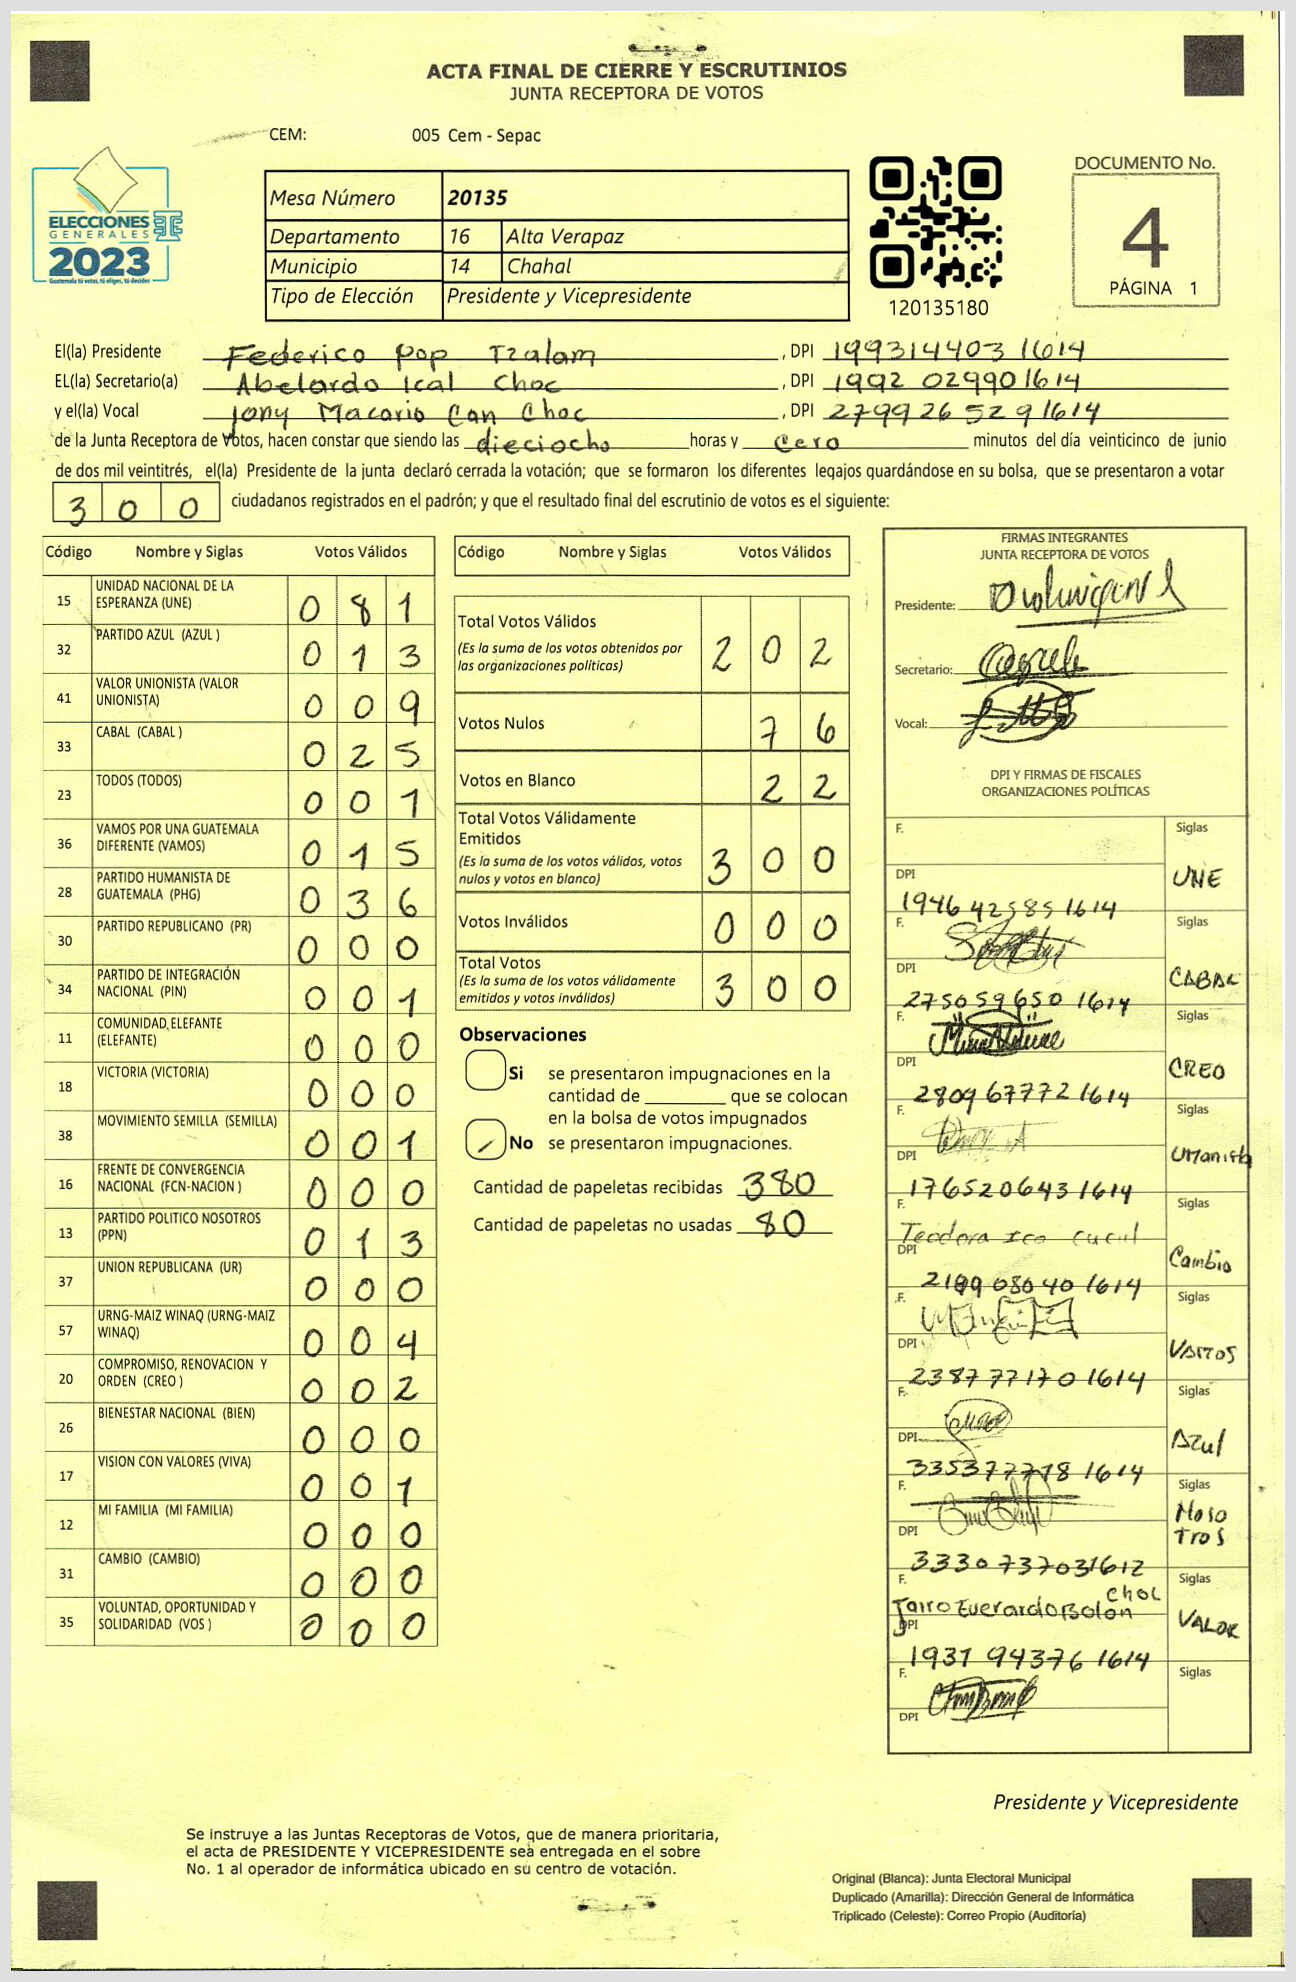 ACTA FINAL DE CIERRE Y ESCRUTINIOS
JUNTA RECEPTORA DE VOTOS
CEM: 005 Cem - Sepac
ELECCIONES
GENERALES
2023
Guatemala tú votas, tú eliges, tú decides
Mesa Número 20135
Departamento 16 Alta Verapaz
Municipio 14 Chahal
Tipo de Elección Presidente y Vicepresidente
120135180
DOCUMENTO No.
4
PÁGINA 1
El(la) Presidente Federico Pop Tzalam , DPI 199314403 1614
EL(la) Secretario(a) Abelardo Ical Choc , DPI 1992 02990 1614
y el(la) Vocal Jony Macario Can Choc , DPI 2799 26 529 1614
de la Junta Receptora de Votos, hacen constar que siendo las dieciocho horas y cero minutos del día veinticinco de junio
de dos mil veintitrés, el(la) Presidente de la junta declaró cerrada la votación; que se formaron los diferentes legajos guardándose en su bolsa, que se presentaron a votar
3 0 0 ciudadanos registrados en el padrón; y que el resultado final del escrutinio de votos es el siguiente:
Código Nombre y Siglas Votos Válidos
15 UNIDAD NACIONAL DE LA ESPERANZA (UNE) 0 8 1
32 PARTIDO AZUL (AZUL ) 0 1 3
41 VALOR UNIONISTA (VALOR UNIONISTA) 0 0 9
33 CABAL (CABAL ) 0 2 5
23 TODOS (TODOS) 0 0 1
36 VAMOS POR UNA GUATEMALA DIFERENTE (VAMOS) 0 1 5
28 PARTIDO HUMANISTA DE GUATEMALA (PHG) 0 3 6
30 PARTIDO REPUBLICANO (PR) 0 0 0
34 PARTIDO DE INTEGRACIÓN NACIONAL (PIN) 0 0 1
11 COMUNIDAD ELEFANTE (ELEFANTE) 0 0 0
18 VICTORIA (VICTORIA) 0 0 0
38 MOVIMIENTO SEMILLA (SEMILLA) 0 0 1
16 FRENTE DE CONVERGENCIA NACIONAL (FCN-NACION ) 0 0 0
13 PARTIDO POLITICO NOSOTROS (PPN) 0 1 3
37 UNION REPUBLICANA (UR) 0 0 0
57 URNG-MAIZ WINAQ (URNG-MAIZ WINAQ) 0 0 4
20 COMPROMISO, RENOVACION Y ORDEN (CREO ) 0 0 2
26 BIENESTAR NACIONAL (BIEN) 0 0 0
17 VISION CON VALORES (VIVA) 0 0 1
12 MI FAMILIA (MI FAMILIA) 0 0 0
31 CAMBIO (CAMBIO) 0 0 0
35 VOLUNTAD, OPORTUNIDAD Y SOLIDARIDAD (VOS ) 0 0 0
Código Nombre y Siglas Votos Válidos
Total Votos Válidos
(Es la suma de los votos obtenidos por las organizaciones políticas) 2 0 2
Votos Nulos 7 6
Votos en Blanco 2 2
Total Votos Válidamente Emitidos
(Es la suma de los votos válidos, votos nulos y votos en blanco) 3 0 0
Votos Inválidos 0 0 0
Total Votos
(Es la suma de los votos válidamente emitidos y votos inválidos) 3 0 0
Observaciones
Si se presentaron impugnaciones en la
cantidad de ________ que se colocan
en la bolsa de votos impugnados
No se presentaron impugnaciones.
Cantidad de papeletas recibidas 380
Cantidad de papeletas no usadas 80
FIRMAS INTEGRANTES
JUNTA RECEPTORA DE VOTOS
Presidente:
Secretario:
Vocal:
DPI Y FIRMAS DE FISCALES
ORGANIZACIONES POLÍTICAS
F. Siglas
DPI UNE
1946 42585 1614
F. Siglas
DPI CABAL
275059650 1614
F. Siglas
DPI CREO
2809 67772 1614
F. Siglas
DPI Umanista
176520643 1614
F. Siglas
Teodora Ico Cucul
DPI Cambio
2199 08040 1614
F. Siglas
DPI VAMOS
2387 77170 1614
F. Siglas
DPI Azul
335377778 1614
F. Siglas
DPI Noso
tros
3330 73703 1612
F. Siglas
Jairo Euerardo Bolon Choc
DPI VALOR
1931 94376 1614
F. Siglas
DPI
Presidente y Vicepresidente
Se instruye a las Juntas Receptoras de Votos, que de manera prioritaria,
el acta de PRESIDENTE Y VICEPRESIDENTE sea entregada en el sobre
No. 1 al operador de informática ubicado en su centro de votación.
Original (Blanca): Junta Electoral Municipal
Duplicado (Amarilla): Dirección General de Informática
Triplicado (Celeste): Correo Propio (Auditoría)